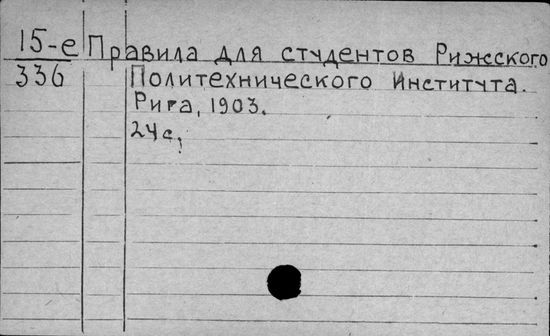 15-е Правила для студентов Рижского
336 Политехнического Института.
Рига, 1903.
24с.